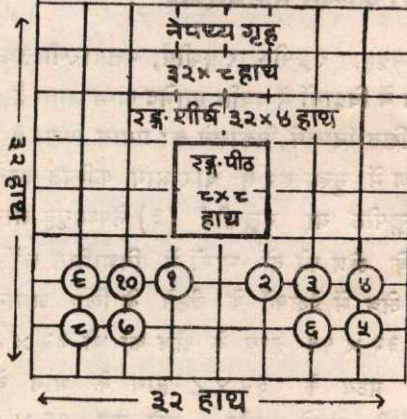 नेपथ्य गृह
३२×८ हाथ
रङ्ग·शीर्ष ३२×४ हाथ
रङ्ग·पीठ
८×८
हाथ
३२ हाथ
६ १० १ २ ३ ४
८ ७ ६ ५
३२ हाथ